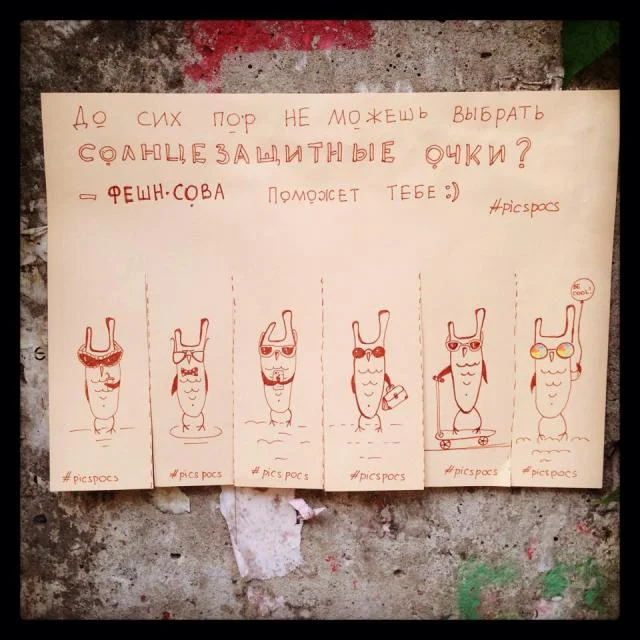 ДО СИХ ПОР НЕ МОЖЕШЬ ВЫБРАТЬ
СОЛНЦЕЗАЩИТНЫЕ ОЧКИ?
– ФЕШН·СОВА ПОМОЖЕТ ТЕБЕ :)
#picspocs
BE COOL!
#picspocs #picspocs #picspocs #picspocs #picspocs #picspocs